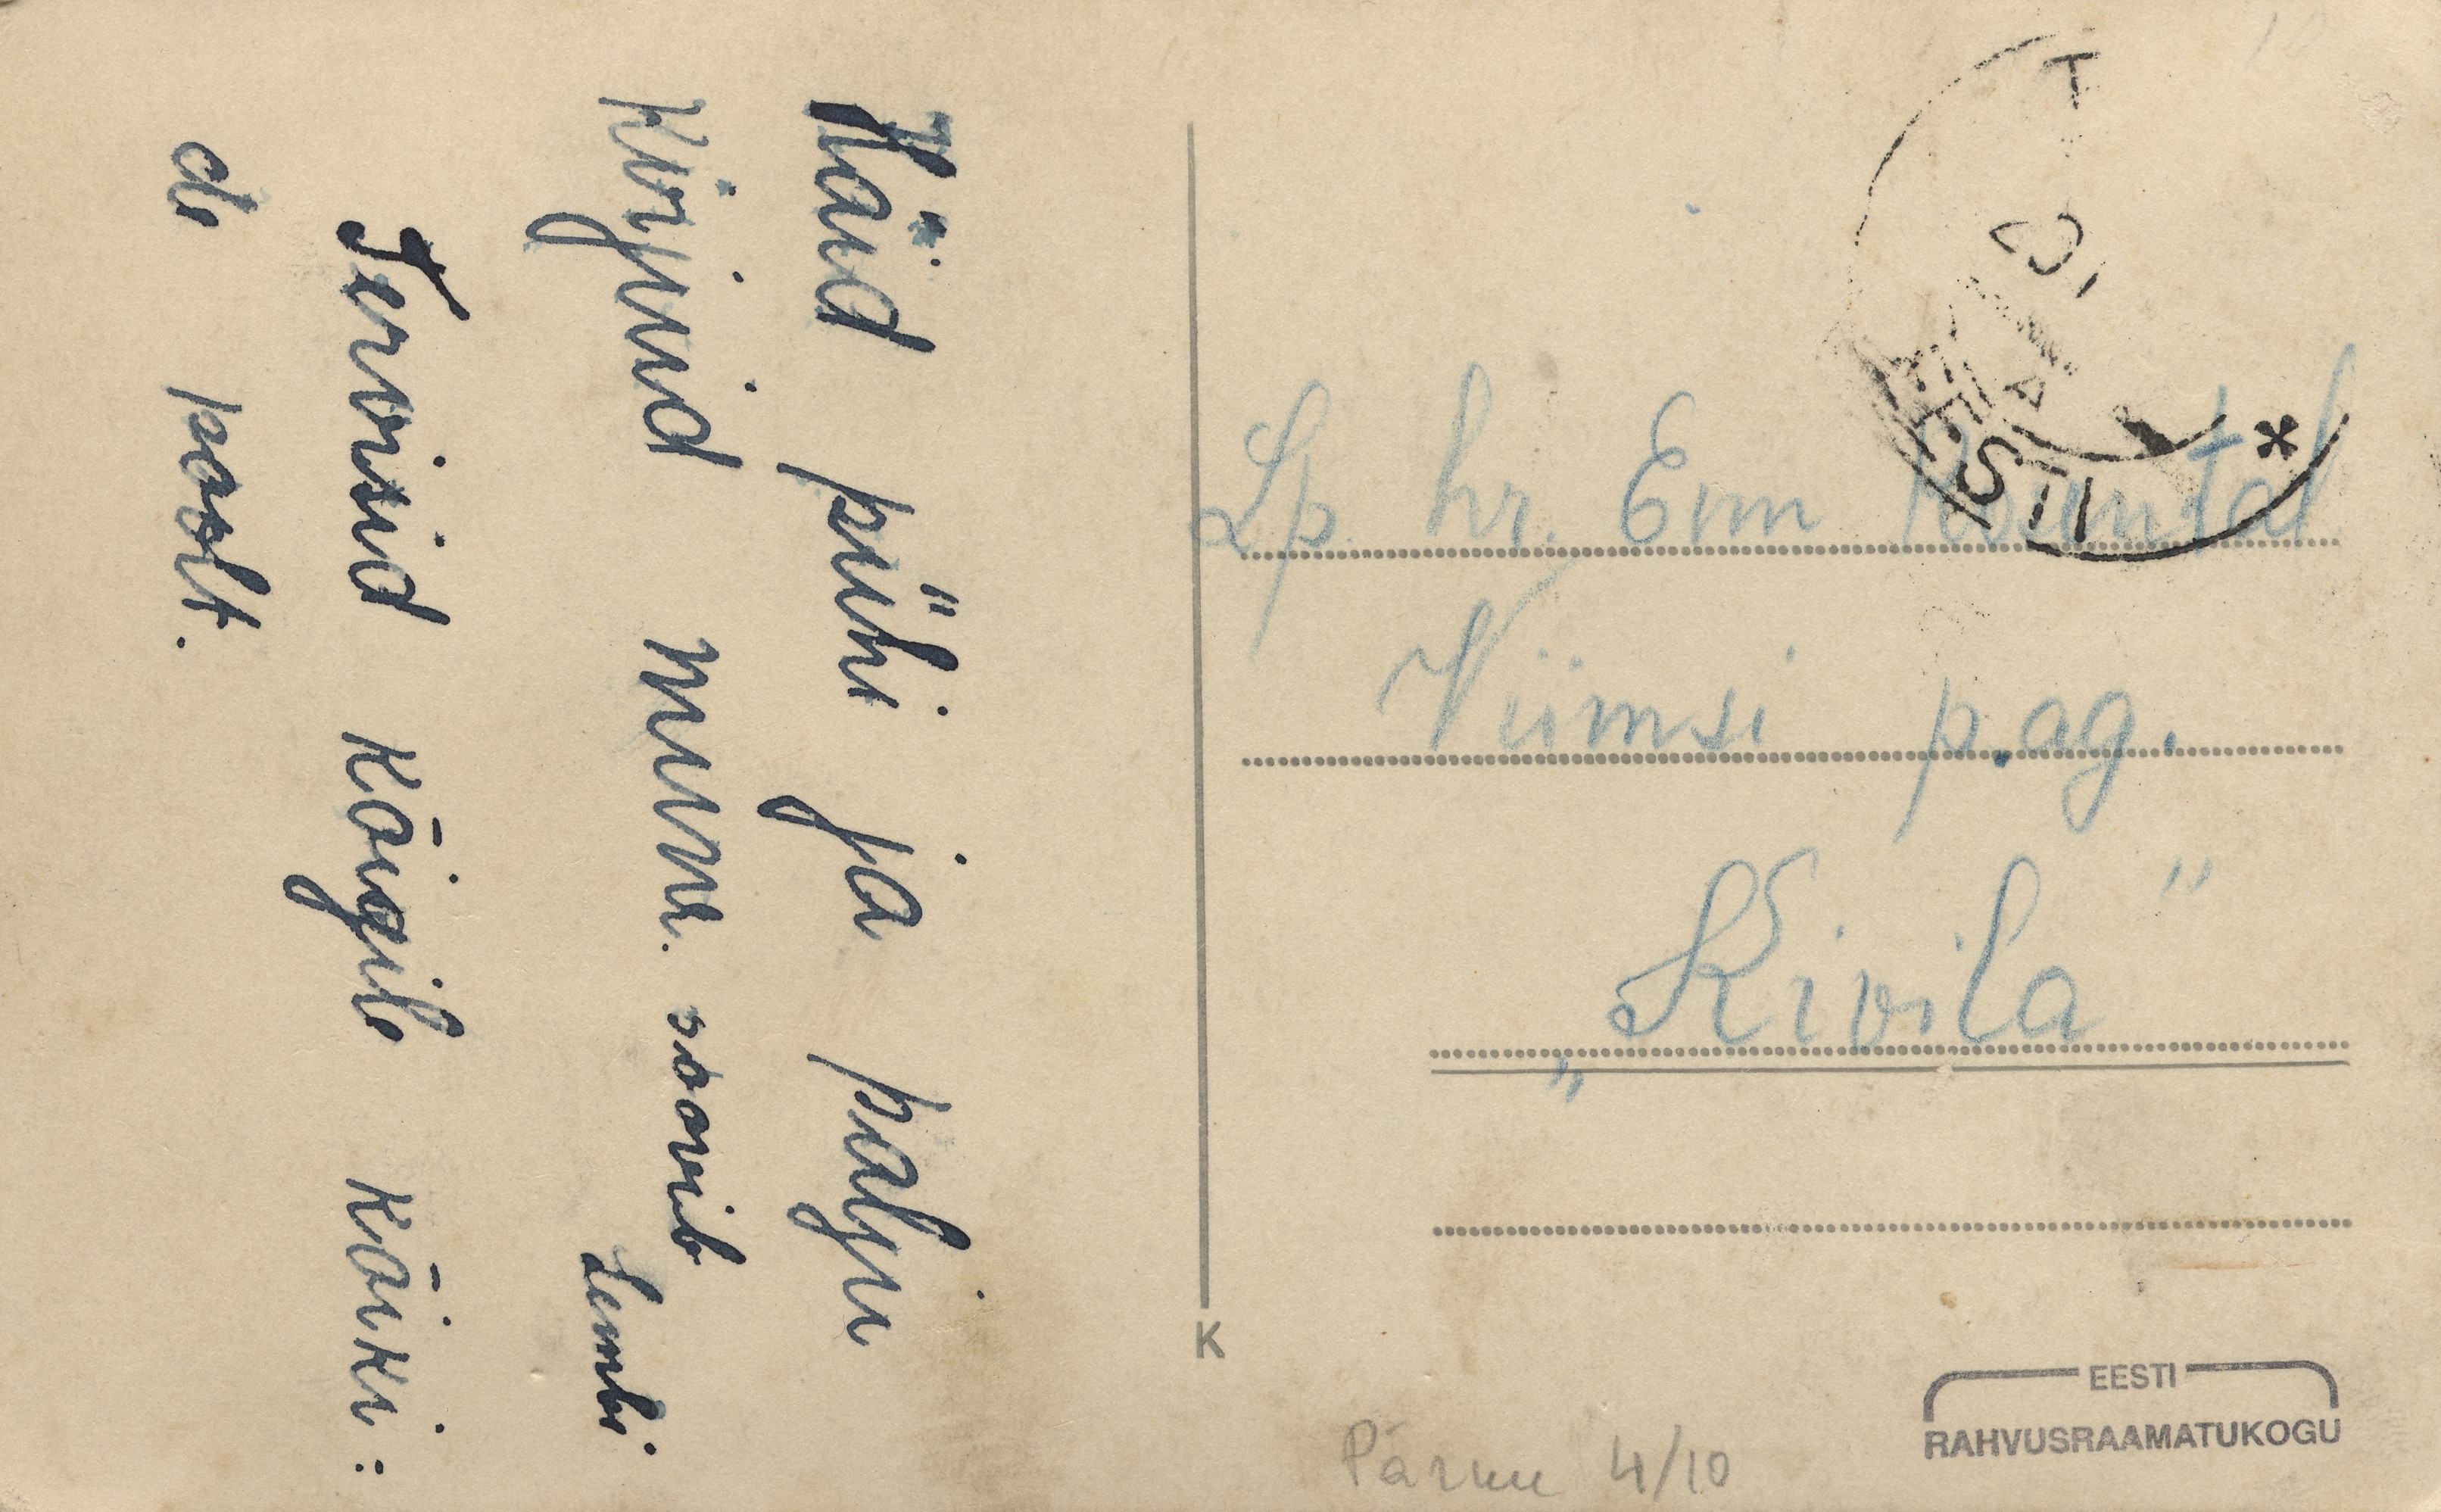 Häid pühi ja palju
Kirjuid mune. soovib
Lembi
Tervisid kõigile kõiki:
de poolt.
Lp. hr. Enn
Viimsi p. ag.
„Kivila"
EESTI
K
Pärnu 4/10
EESTI
RAHVUSRAAMATUKOGU